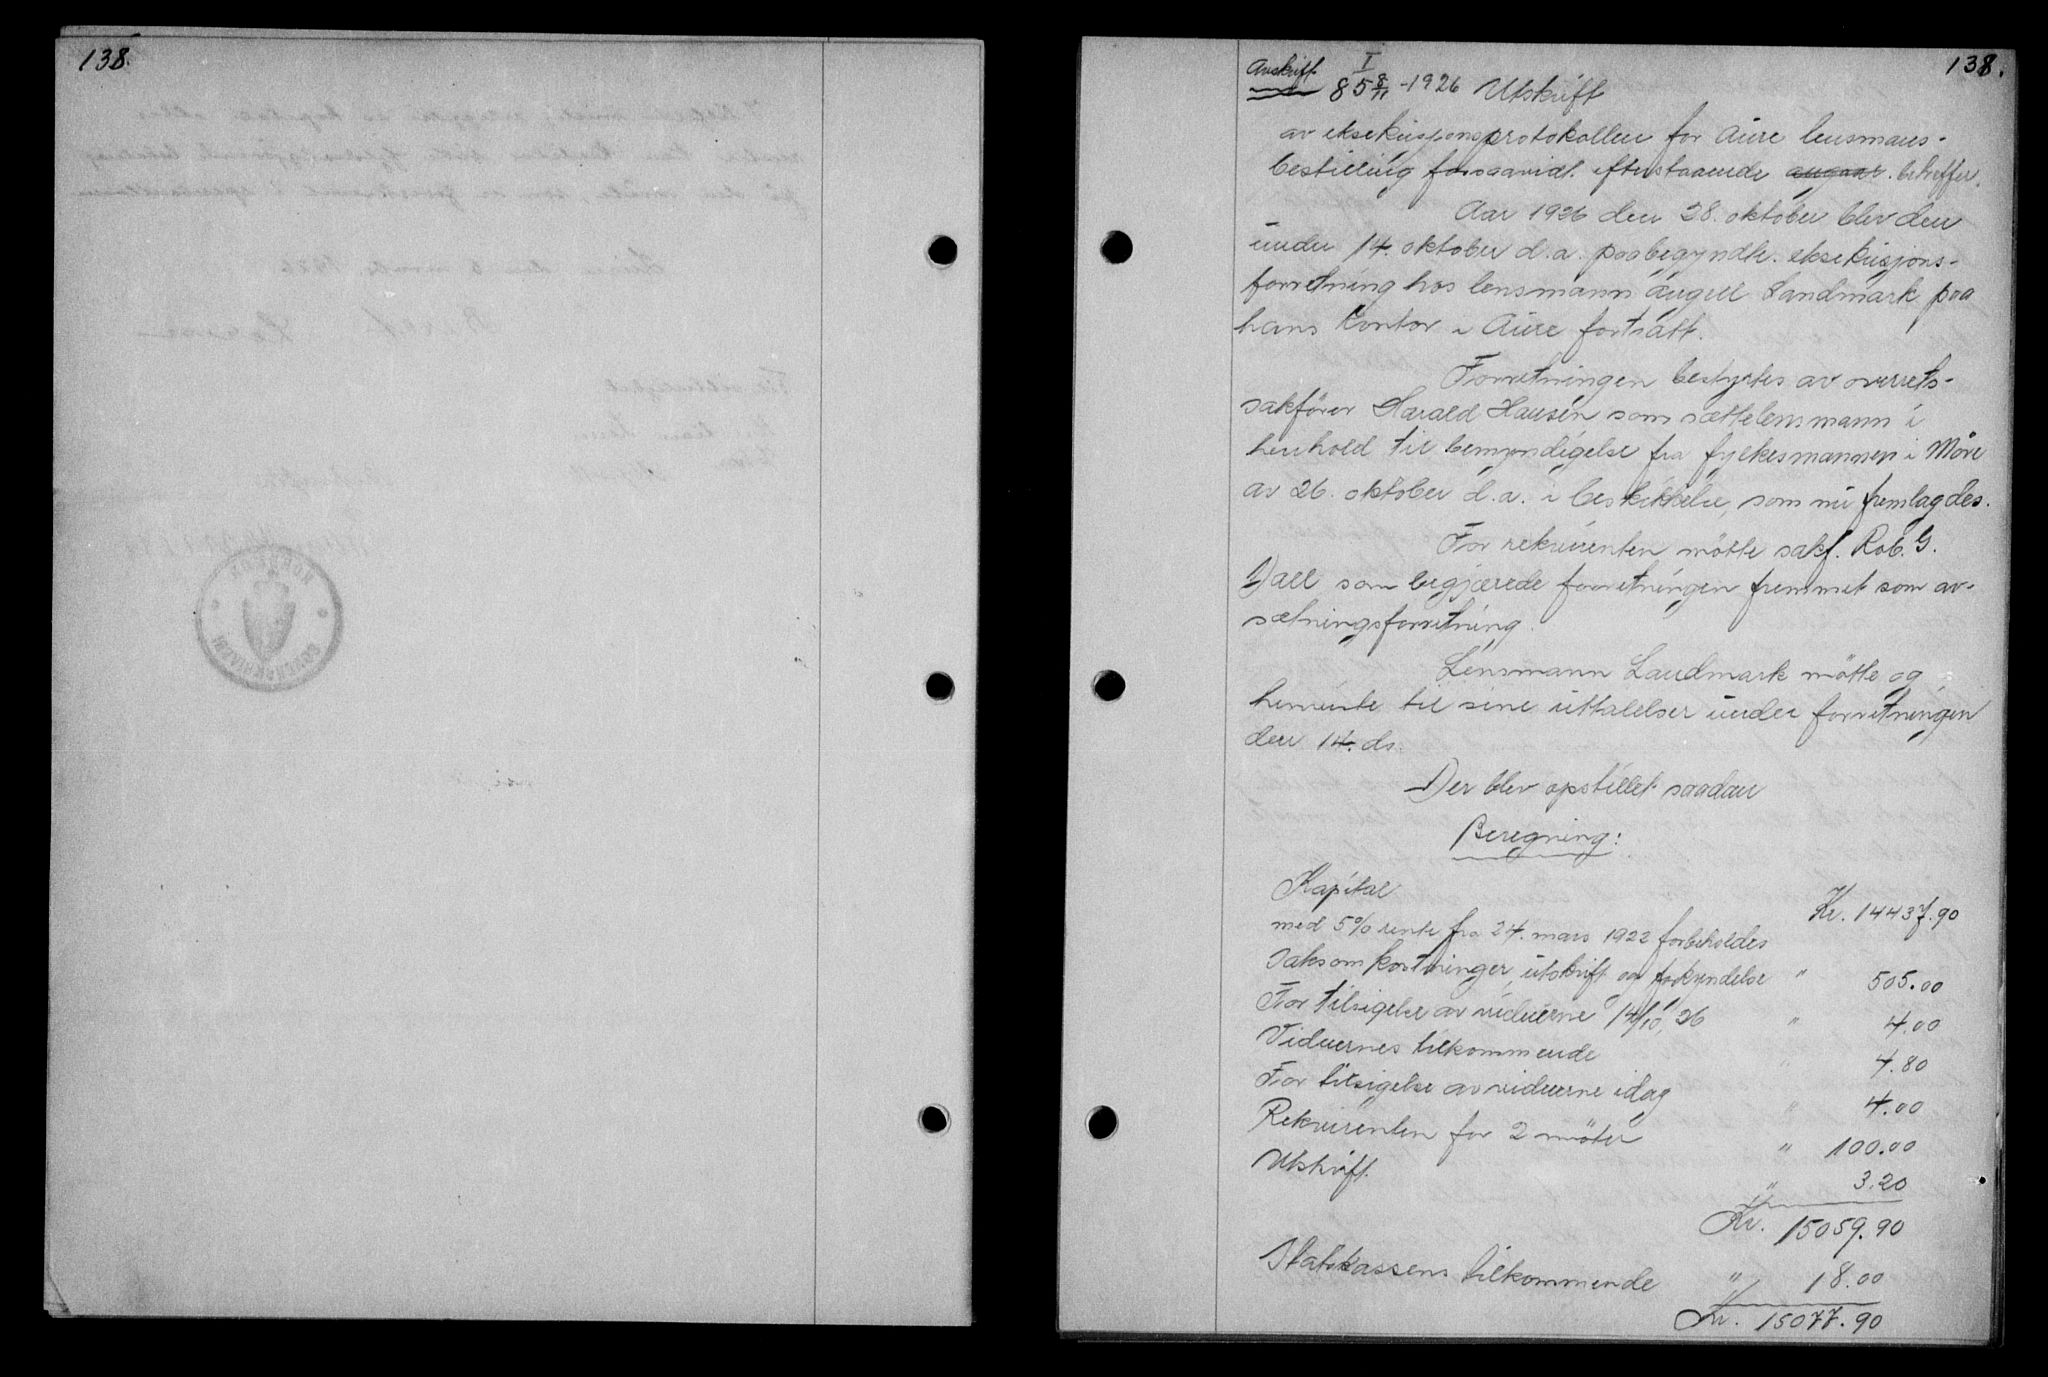 138.
138.
Avskrift. I
85 8/11 -1926 Utskrift
av eksekusjonsprotokollen for Aure lensmans-
bestilling forsaavidt efterstaaende angaar. betreffer.
Aar 1926 den 28. oktober blev den
under 14. oktober d.a. paabegyndte eksekusjons-
forretning hos lensmann Landmark paa
hans kontor i Aure fortsatt.
Forretningen bestyrtes av overrets-
sakfører Harald Hansen som sættelensmann i
henhold til bemyndigelse fra fylkesmannen i Møre
av 26. oktober d.a. i beskikkelse, som nu fremlagdes.
For rekvirenten møtte sakf. Rob. G.
Dall som begjærede forretningen fremmet som av-
sætningsforretning.
Lensmann Landmark møtte og
henviste til sine uttalelser under forretningen
den 14. ds.
Der blev opstillet saadan
Beregning:
Kapital Kr. 14437.90
med 5% rente fra 24. mars 1922 forbeholdes
Saksomkostninger, utskrift og forkyndelse " 505.00
For tilsigelse av vidnerne 14/10, 26 " 4.00
Vidnernes tilkommende 4.80
For tilsigelse av vidnerne idag " 4.00
Rekvirenten for 2 møter " 100.00
Utskrift. " 3.20
Kr. 15059.90
Statskassens tilkommende " 18.00
Kr. 15077.90